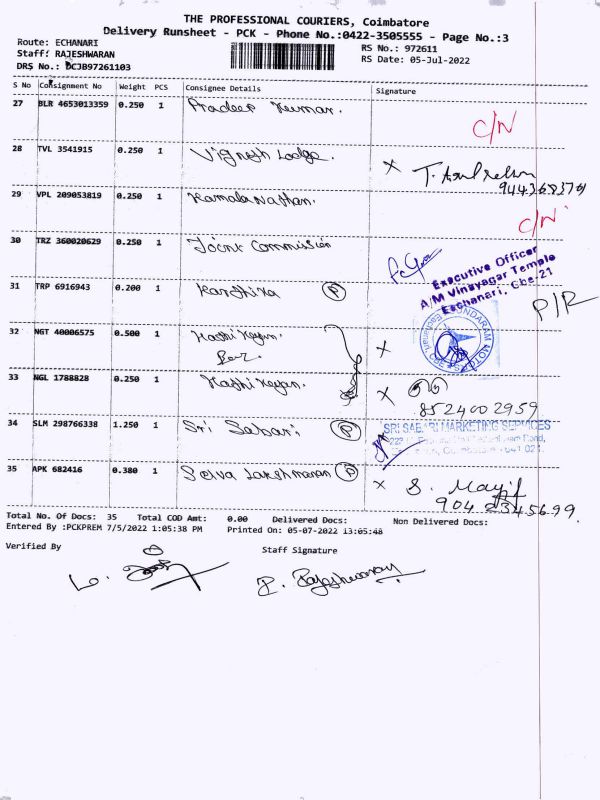 THE PROFESSIONAL COURIERS, Coimbatore
Delivery Runsheet - PCK - Phone No.:0422-3505555 - Page No.:3
Route: ECHANARI
Staff: RAJESHWARAN
DRS No.: DCJB97261103
RS No.: 972611
RS Date: 05-Jul-2022
S No Consignment No Weight PCS Consignee Details Signature
27 BLR 4653013359 0.250 1 Pradeep Kumar.
C/N
28 TVL 3541915 0.250 1 Vignesh Lodge.
X
29 VPL 209053819 0.250 1 Kamala Nathan.
C/N
30 TRZ 360020629 0.250 1 Joint Commission
Executive Officer
A/M Vinayagar Temple
Eachanari, Cbe-21
31 TRP 6916943 0.200 1 Karthika P
P/R
32 NGT 40006575 0.500 1
X
33 NGL 1788828 0.250 1
X
8524002959
34 SLM 298766338 1.250 1 Sri Sabari P
SRI SABARI MARKETING SERVICES
35 APK 682416 0.380 1 Selva Lakshmanan P
X S.
904 2345699
Total No. Of Docs: 35 Total COD Amt: 0.00 Delivered Docs: Non Delivered Docs:
Entered By :PCKPREM 7/5/2022 1:05:38 PM Printed On: 05-07-2022 13:05:48
Verified By Staff Signature
P. Rajeshwaran